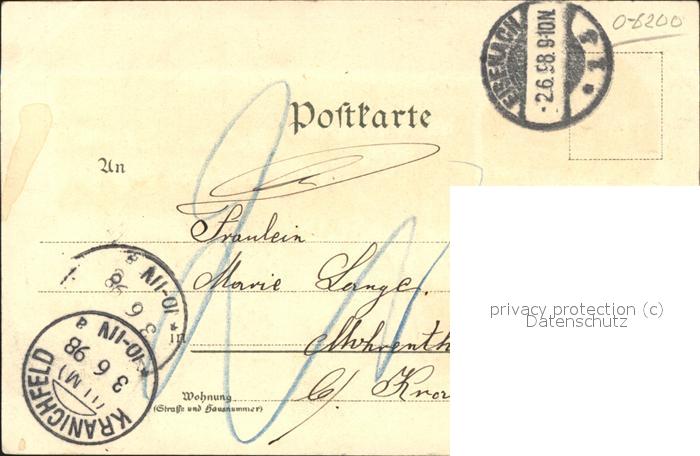 O-5200
EISENACH
-2.6.98. 9-10N.
* 1 *
Poſtkarte
An
Fräulein
Marie Lange.
in
Mohrenth
b/ Kra
Wohnung
(Straße und Hausnummer)
3 6 98
*10-11V a
KRANICHFELD
(I.M)
3 6 98
*10-11V a
privacy protection (c)
Datenschutz